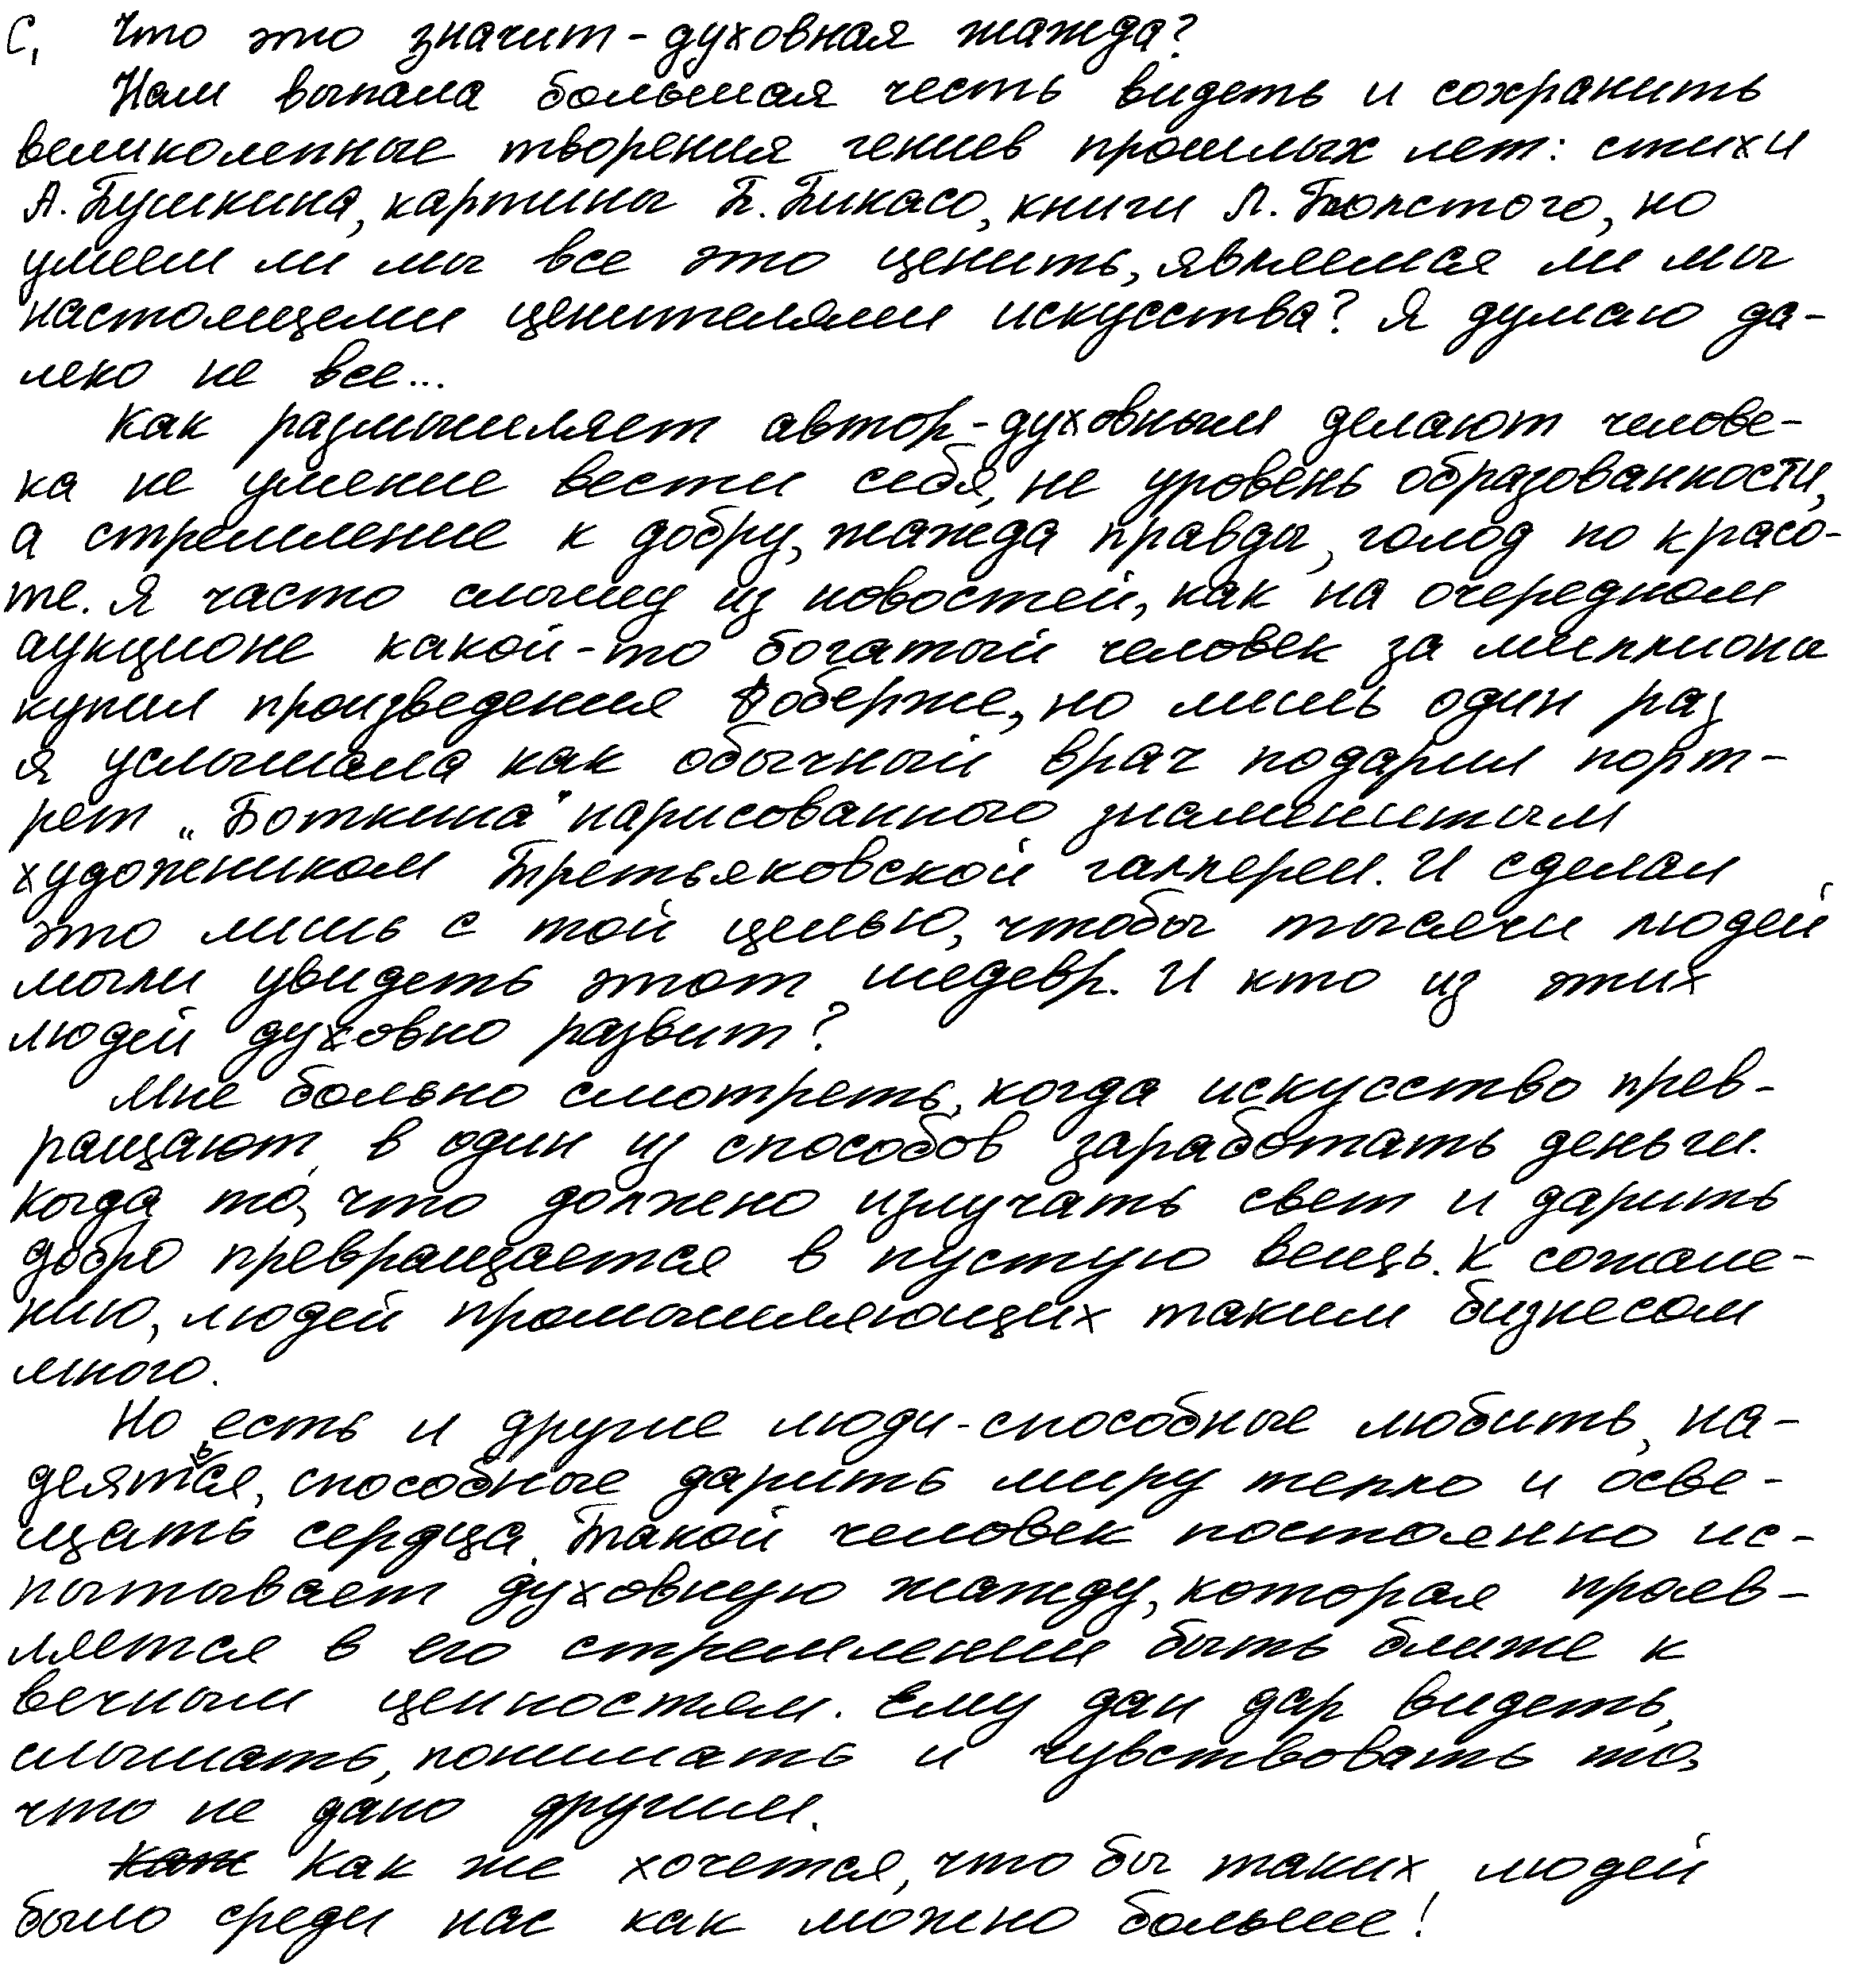 С₁ Что это значит - духовная жажда?
Нам выпала большая честь видеть и сохранить
великолепные творения гениев прошлых лет: стихи
А. Пушкина, картины П. Пикасо, книги Л. Толстого, но
умеем ли мы все это ценить, являемся ли мы
настоящеми ценителями искусства? Я думаю да-
леко не все...
Как размышляет автор - духовным делают челове-
ка не умение вести себя, не уровень образованности,
а стремление к добру, жажда правды, голод по красо-
те. Я часто слышу из новостей, как на очередном
аукционе какой-то богатый человек за миллионы
купил произведения Фоберже, но лишь один раз
я услышала как обычный врач подарил порт-
рет „Боткина" нарисованного знаменитым
художником Третьяковской галлереи. И сделал
это лишь с той целью, чтобы тысячи людей
могли увидеть этот шедевр. И кто из этих
людей духовно развит?
Мне больно смотреть, когда искусство прев-
ращают в один из способов заработать деньги.
Когда то, что должно излучать свет и дарить
добро превращается в пустую вещь. К сожале-
нию, людей промышляющих таким бизнесом
много.
Но есть и другие люди - способные любить, на-
деяться, способные дарить миру тепло и осве-
щать сердца. Такой человек постоянно ис-
пытывает духовную жажду, которая прояв-
ляется в его стремлении быть ближе к
вечным ценностям. Ему дан дар видеть,
слышать, понимать и чувствовать то,
что не дано другим.
Как же хочется, что бы таких людей
было среди нас как можно больше!